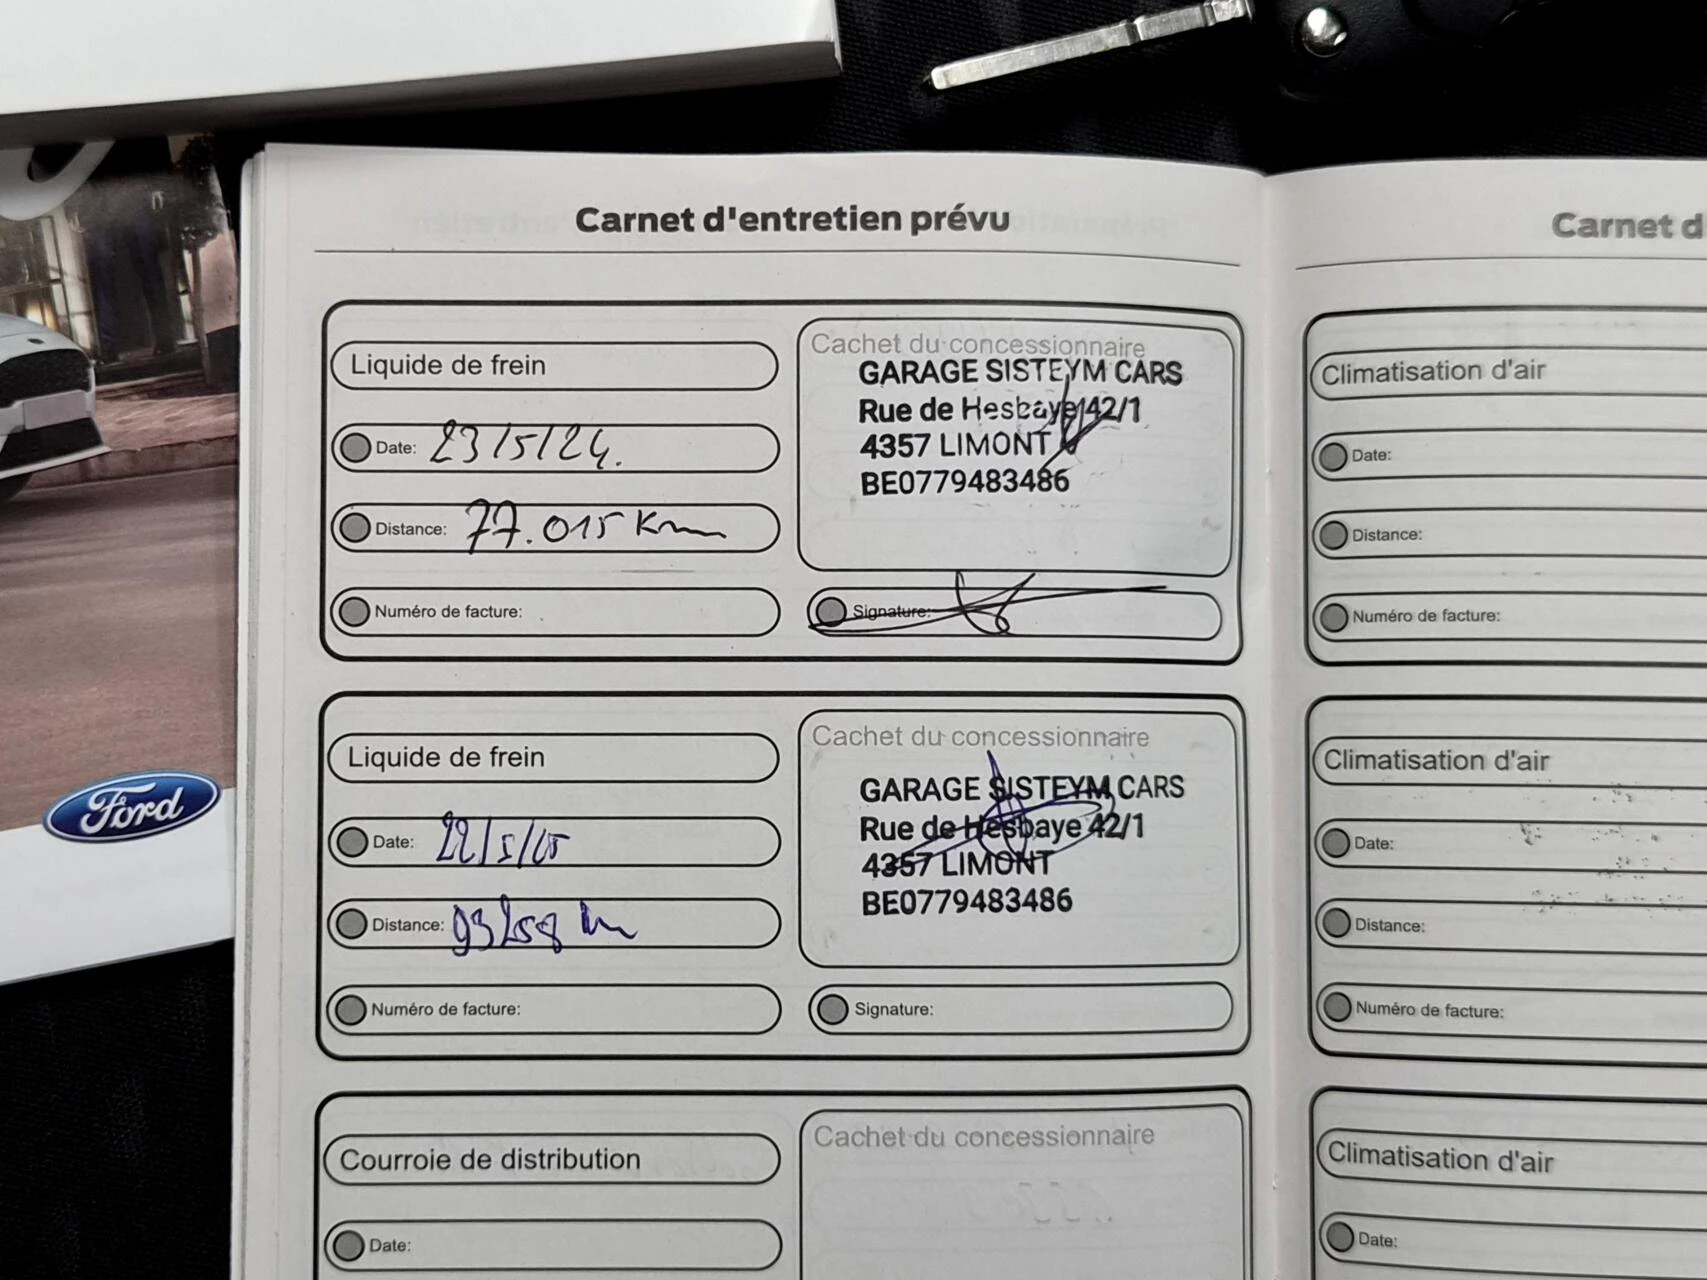 Carnet d'entretien prévu
Liquide de frein
Date: 23/5/24.
Distance: 77.015 Km
Numéro de facture:
Cachet du concessionnaire
GARAGE SISTEYM CARS
Rue de Hesbaye 42/1
4357 LIMONT
BE0779483486
Signature:
Liquide de frein
Date: 22/5/25
Distance: 93258 km
Numéro de facture:
Cachet du concessionnaire
GARAGE SISTEYM CARS
Rue de Hesbaye 42/1
4357 LIMONT
BE0779483486
Signature:
Courroie de distribution
Date:
Cachet du concessionnaire
Carnet d
Climatisation d'air
Date:
Distance:
Numéro de facture:
Climatisation d'air
Date:
Distance:
Numéro de facture:
Climatisation d'air
Date:
Ford